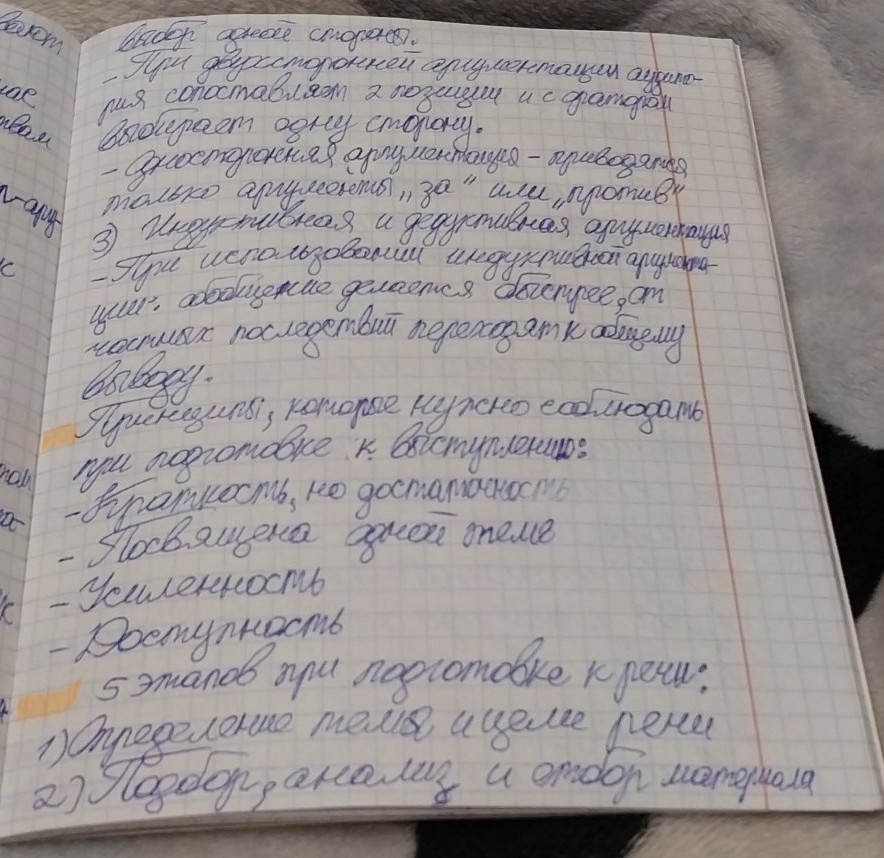 вают
выбор одной стороны.
- При двухсторонней аргументации аудито-
рия сопоставляет 2 позиции и с оратором
выбирает одну сторону.
- Односторонняя аргументация - приводятся
только аргументы „за“ или „против“
3) Индуктивная и дедуктивная аргументация
- При использовании индуктивной аргумента-
ции: обобщение делается быстрее, от
частных последствий переходят к общему
выводу.
Принципы, которые нужно соблюдать
при подготовке к выступлению:
- Краткость, но достаточность
- Посвящена одной теме
- Усиленность
- Доступность
5 этапов при подготовке к речи:
1) Определение темы и цели речи
2) Подбор, анализ и отбор материала